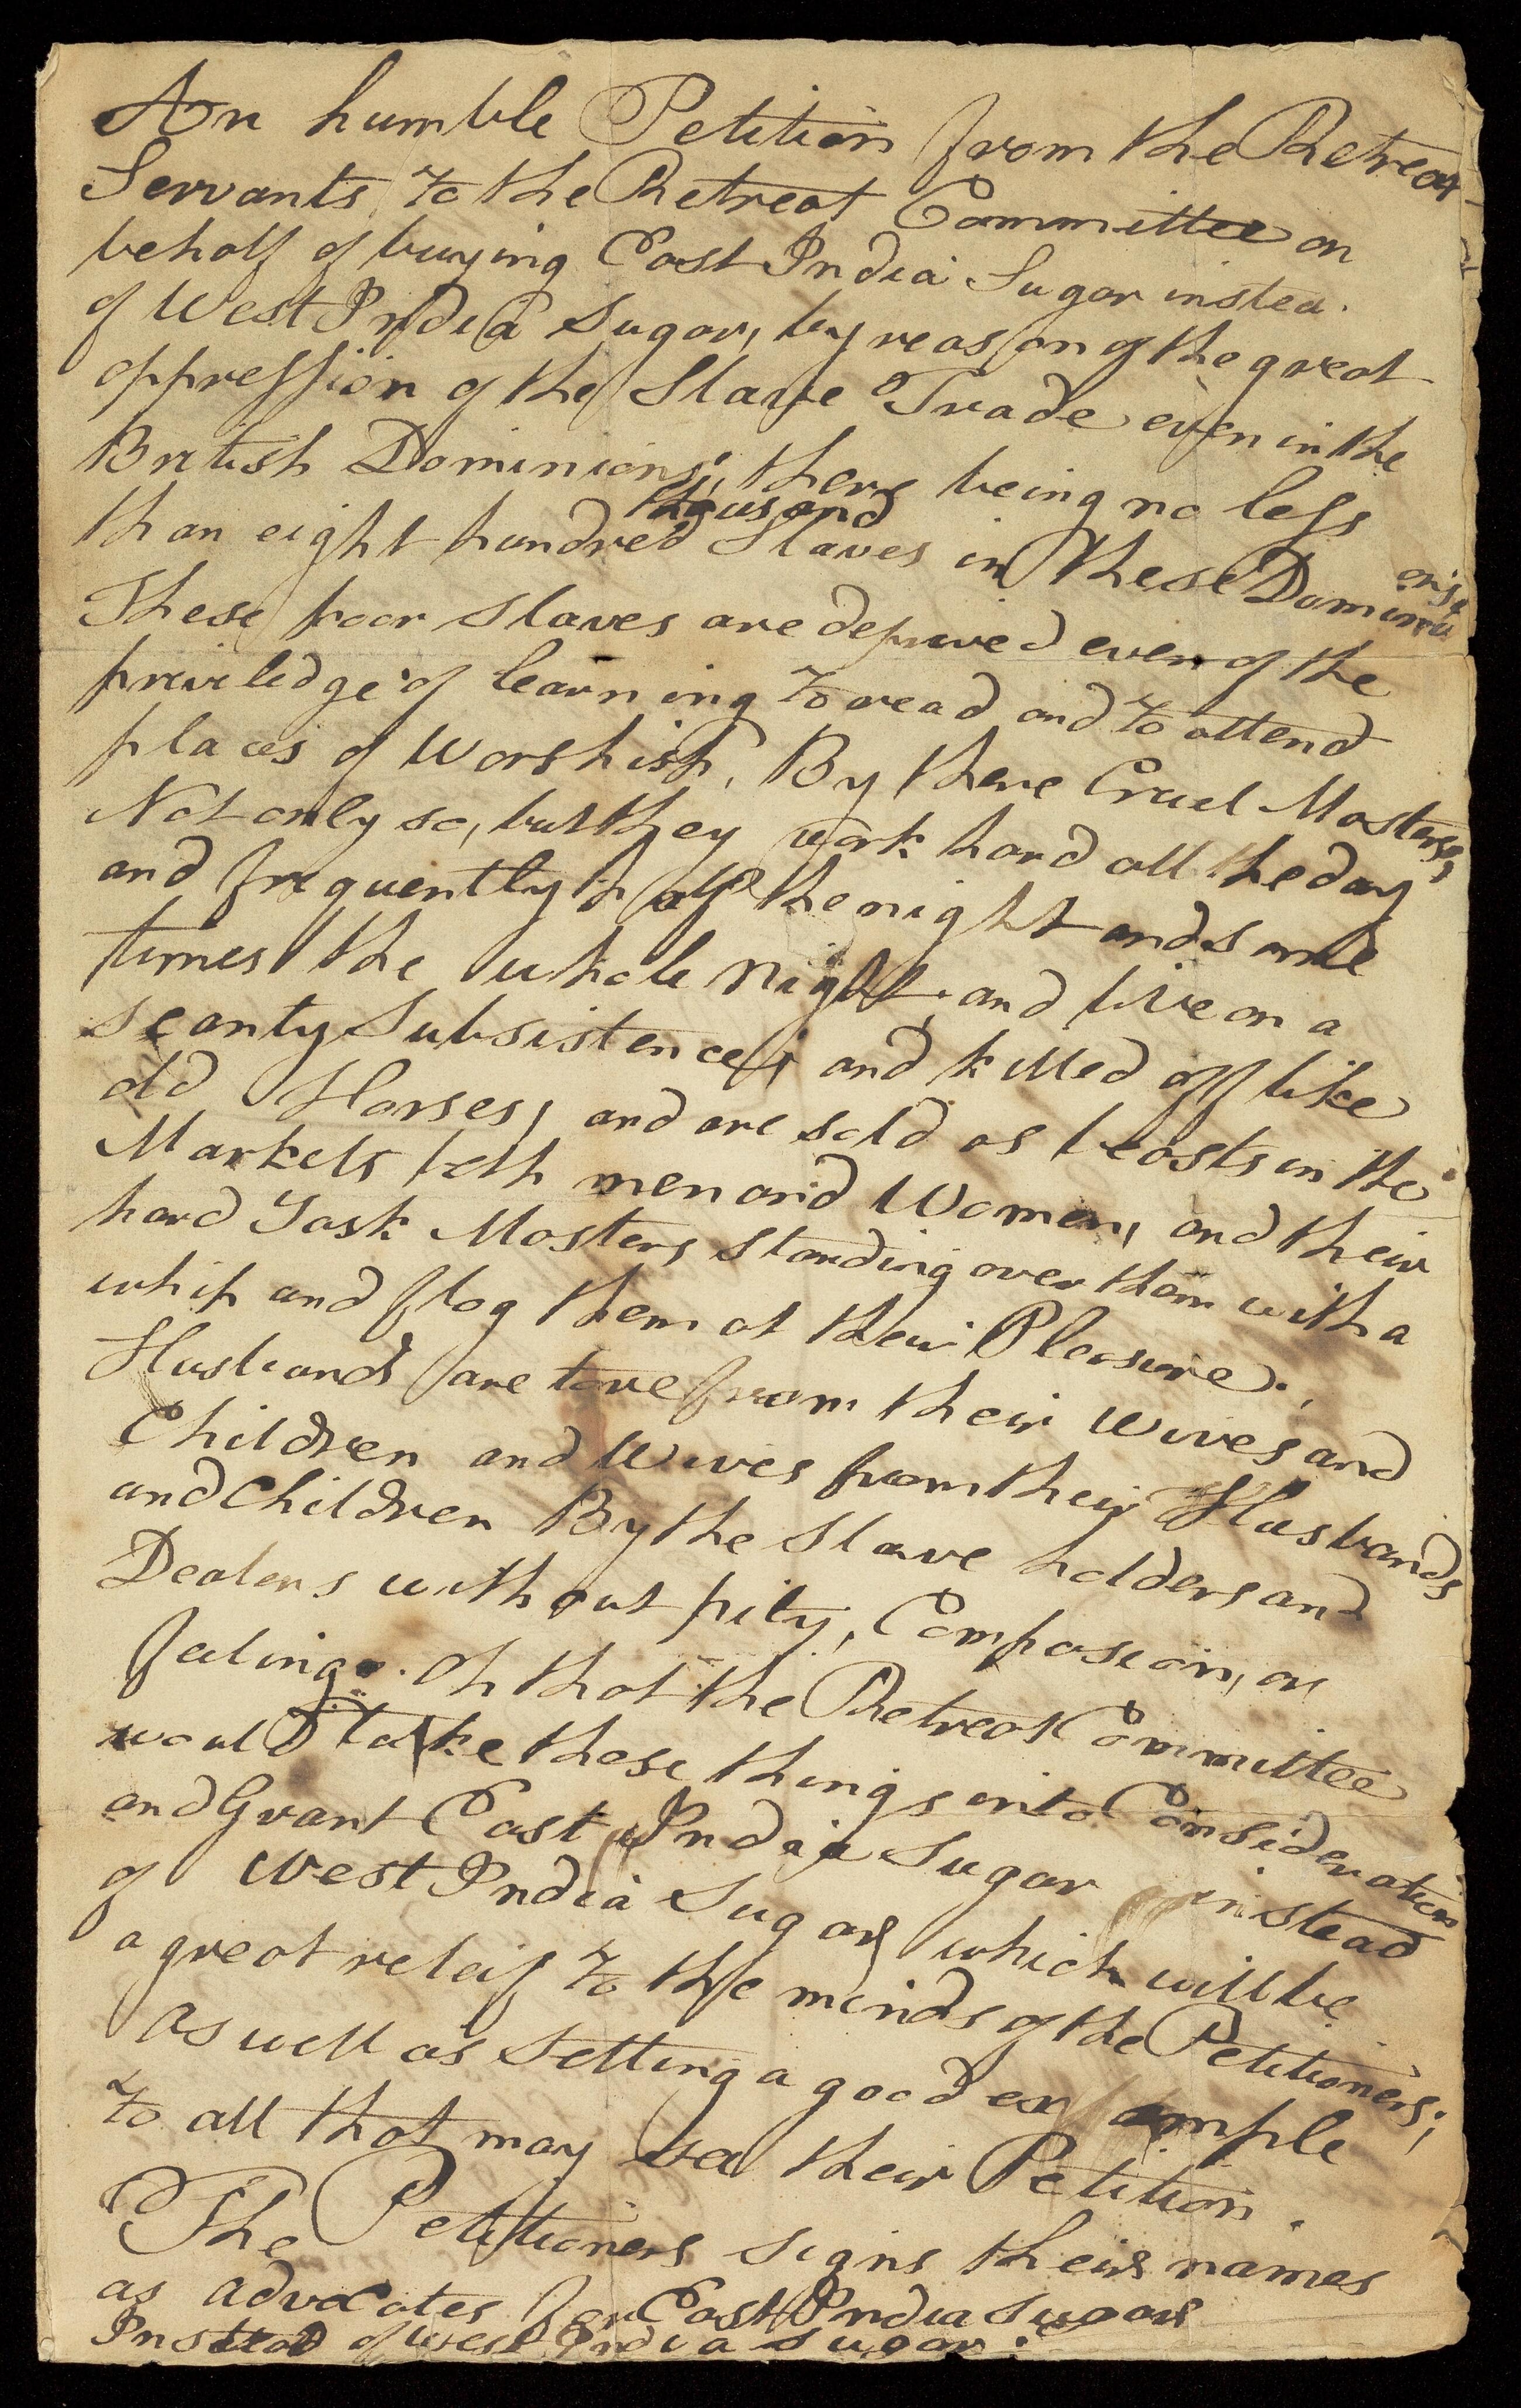 An humble Petition from the Retreat
Servants to the Retreat Committee on
behalf of buying East India Sugar instea
of West India Sugar, by reason of the great
oppression of the Slave Trade even in the
British Dominions; there being no less
than eight hundred thousand Slaves in These Dominions
These poor slaves are deprived even of the
priviledge of learning to read and to attend
places of Worship, By there Cruel Masters,
Not only so, but they work hard all the day
and frequently half the night and some
times the whole night, and live on a
scanty Subsistence; and killed off like
old Horses, and are sold as beasts in the
Markets both men and Women, and their
hard Task Masters standing over them with a
whip and flog them at their Pleasure.
Husbands are tore from their wives and
Children and Wives from their Husbands
and Children By the Slave holders and
Dealers without pity, Compasion, or
feeling. Oh that the Retreat Committee
would take these things into Consideration
and Grant East India Sugar instead
of West India Sugar, which will be
a great releif to the minds of the Petitioners;
as well as setting a good example
to all that may see their Petition.
The Petitioners signs their names
as advocates for East India sugar
Instead of West India sugar.